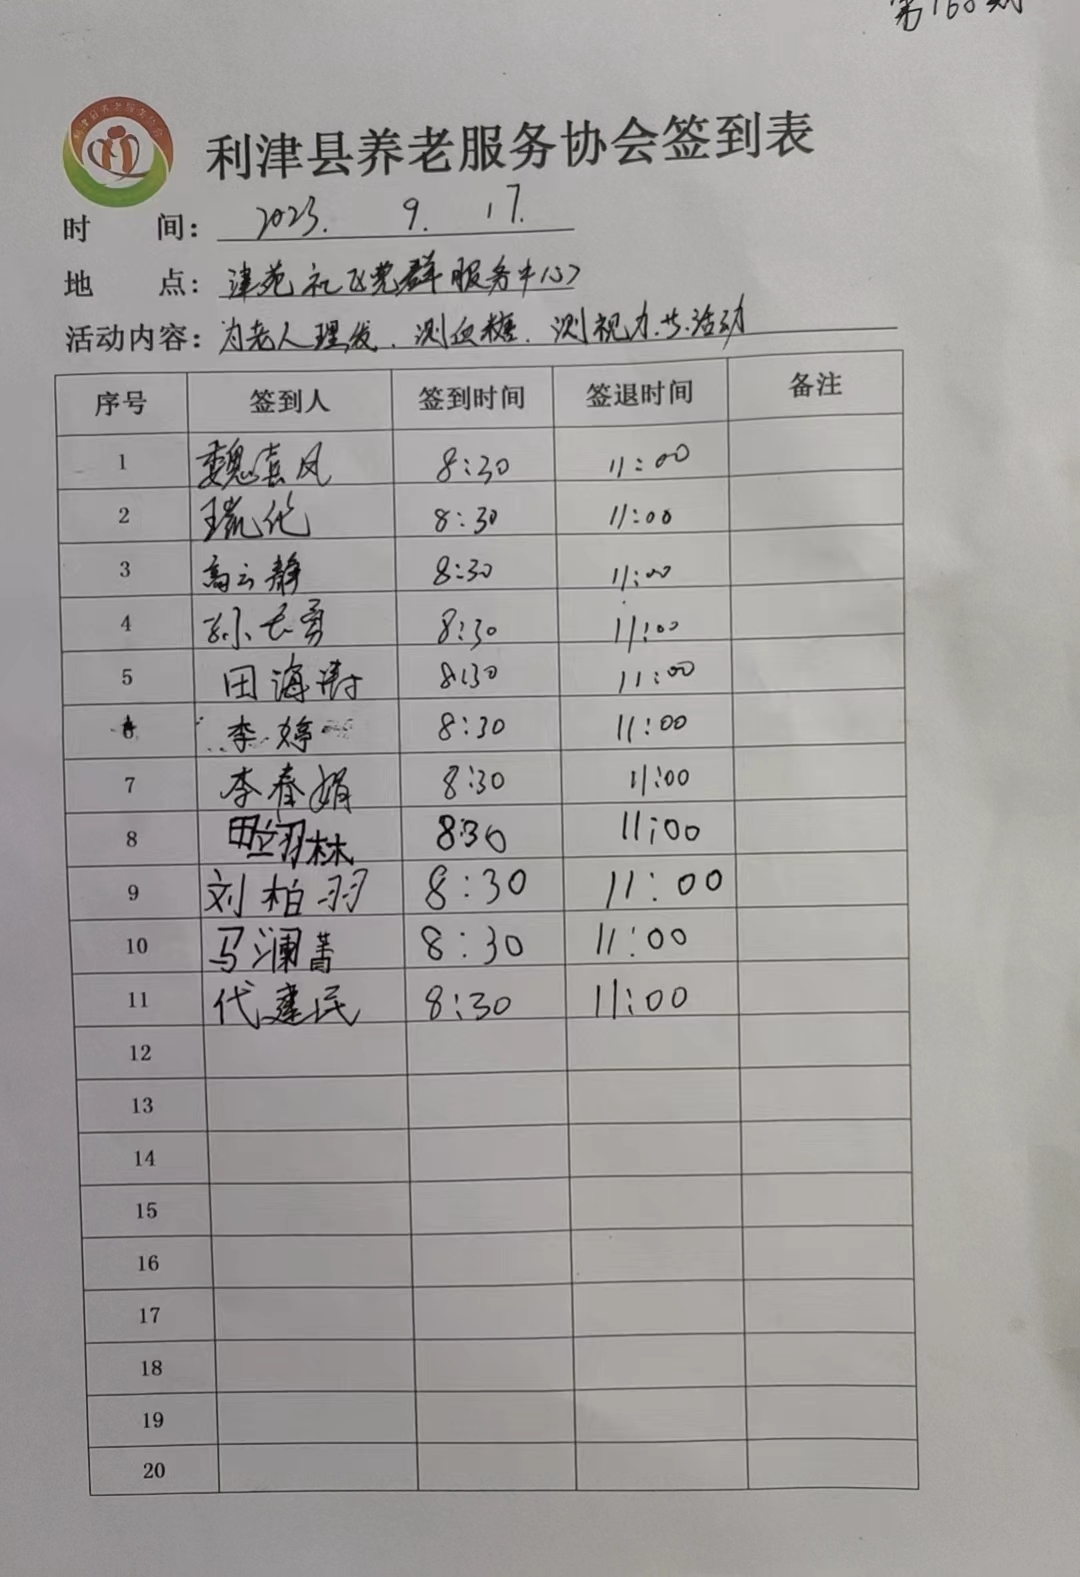 第160期
利津县养老服务协会签到表
时 间: 2023. 9. 17.
地 点: 津苑社区党群服务中心
活动内容: 为老人理发、测血糖、测视力.共.活动
序号 签到人 签到时间 签退时间 备注
1 魏喜凤 8:30 11:00
2 8:30 11:00
3 高云静 8:30 11:00
4 孙长勇 8:30 11:00
5 田海涛 8:30 11:00
6 李婷 8:30 11:00
7 李春娟 8:30 11:00
8 8:30 11:00
9 刘柏羽 8:30 11:00
10 马澜菁 8:30 11:00
11 代建民 8:30 11:00
12
13
14
15
16
17
18
19
20